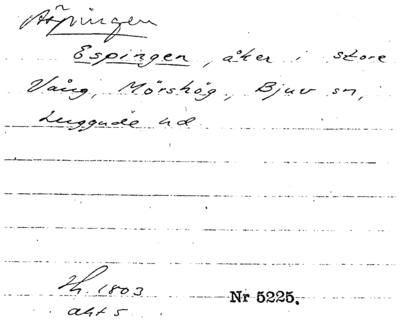 Äspingen
Espingen, åker i store
Vång, Mörshög, Bjuv sn,
Luggude hd
Lh. 1803
akt 5
Nr 5225.